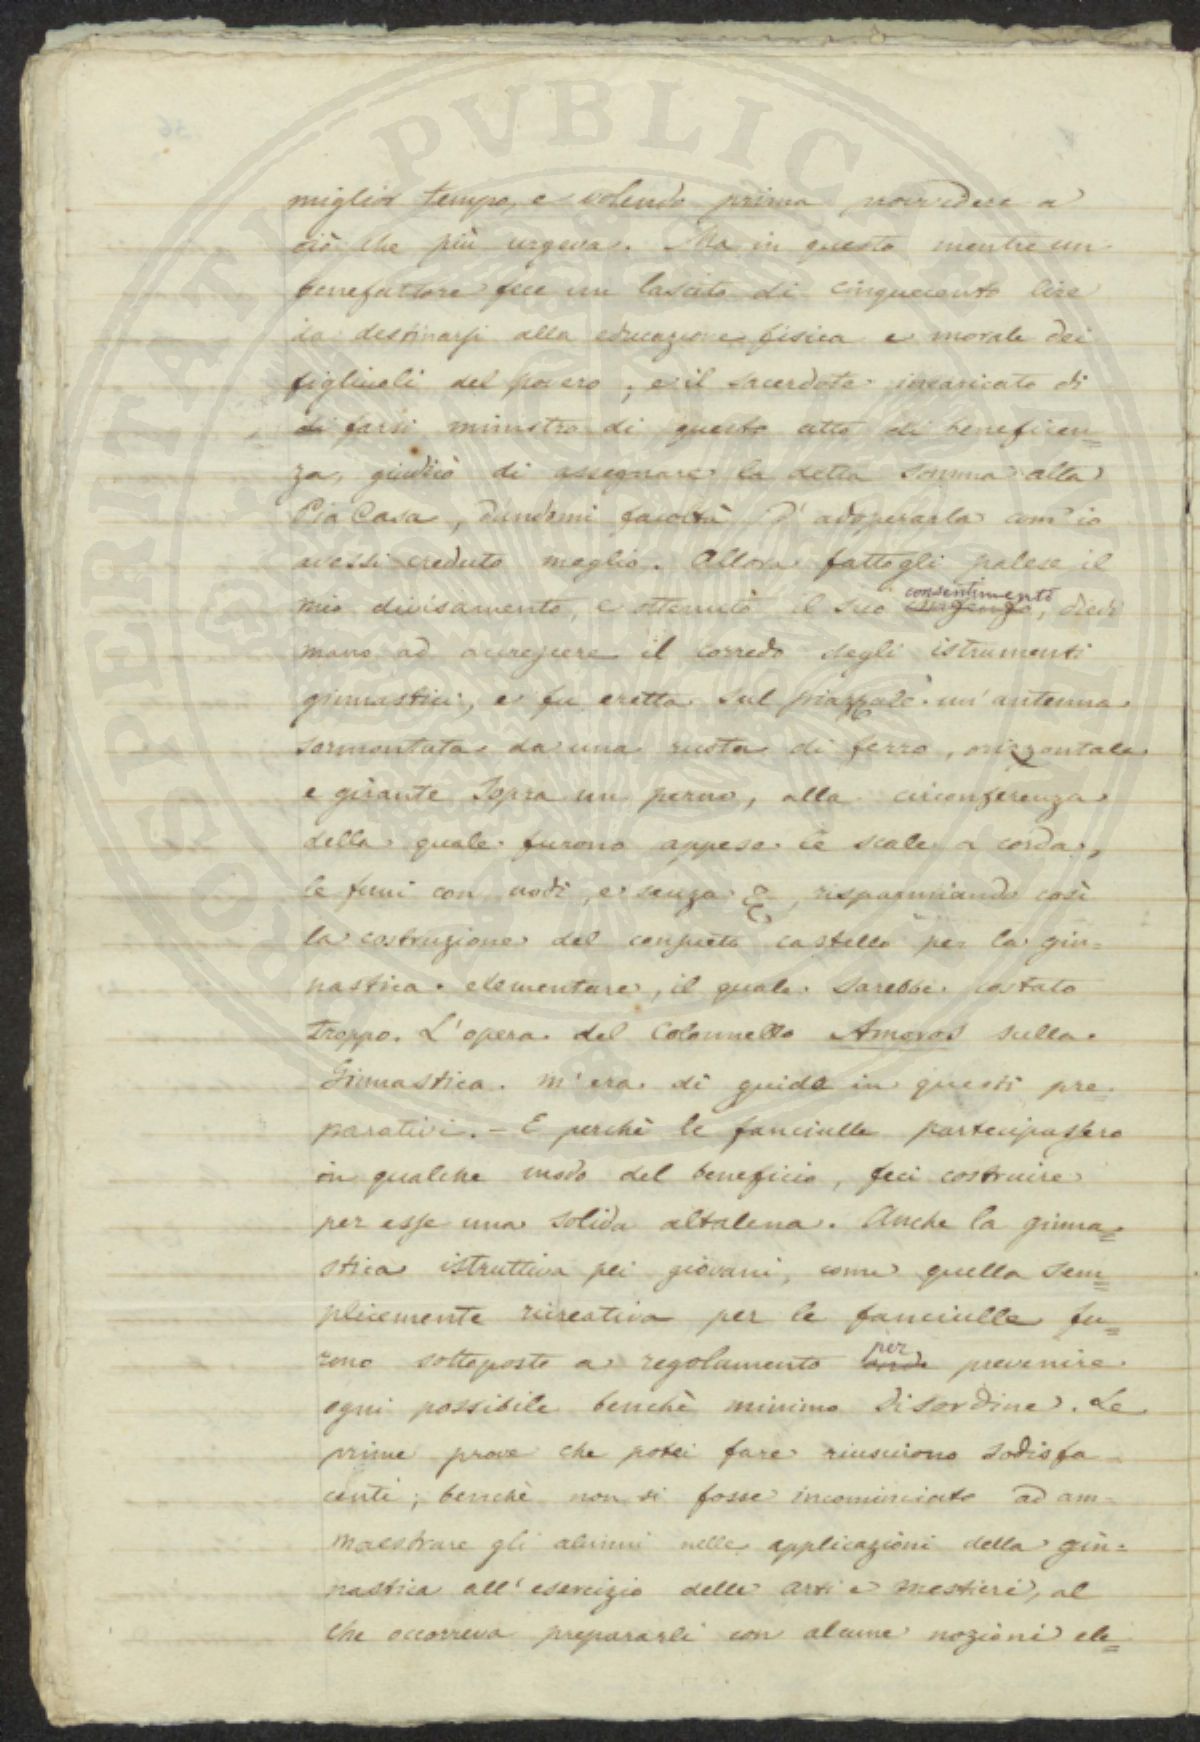 PROSPERITATI PVBLICAE AVGENDAE
miglior tempo, e volendo prima provvedere a
ciò che più urgeva. Ma in questo mentre un
benefattore fece un lascito di cinquecento lire
da destinarsi alla educazione fisica e morale dei
figliuoli del povero, e il sacerdote incaricato di
di farsi ministro di questo atto di beneficen=
za, giudicò di assegnare la detta somma alla
Pia Casa, dandomi facoltà d'adoperarla com'io
avessi creduto meglio. Allora fattogli palese il
mio divisamento, e ottenuto il suo consentimento, diedi
mano ad accrescere il corredo degli istrumenti
ginnastici, e fu eretta sul piazzale un'antenna
sormontata da una ruota di ferro, orizzontale
e girante sopra un perno, alla circonferenza
della quale furono appese le scale a corda,
le funi con nodi, e senza &, risparmiando così
la costruzione del consueto castello per la gin=
nastica elementare, il quale sarebbe costato
troppo. L'opera del Colonnello Amoros sulla
Ginnastica m'era di guida in questi pre=
parativi. – E perchè le fanciulle partecipassero
in qualche modo del beneficio, feci costruire
per esse una solida altalena. Anche la ginna=
stica istruttiva pei giovani, come quella sem=
plicemente ricreativa per le fanciulle fu=
rono sottoposte a regolamento per prevenire
ogni possibile benchè minimo disordine. Le
prime prove che potei fare riuscirono sodisfa
centi; benchè non si fosse incominciato ad am=
maestrare gli alunni nelle applicazioni della gin=
nastica all'esercizio delle arti e mestieri, al
che occorreva prepararli con alcune nozioni ele=